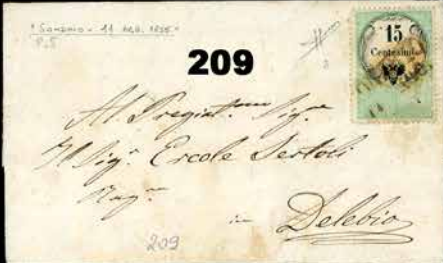 "Sondrio - 11 AGO. 1855"
P.5
209
15
Centesimi
Al Pregiat.mo Sig.r
Il Sig.r Ercole Sertoli
Rag.re
in Delebio
209